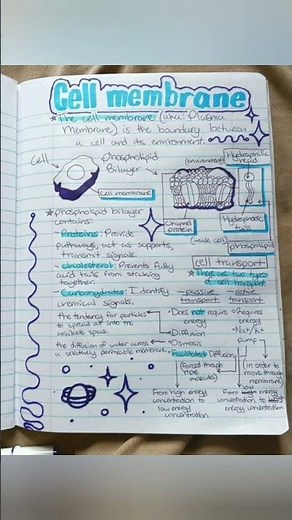 Cell membrane
★The cell membrane (aka: Plasma
Membrane) is the boundary between
a cell and its environment.
Cell
phospholipid
Bilayer
(environment)
Hydrophilic
Head
Cell membrane
Channel
protein
Hydrophobic
tails
(inside cell)
phospholipid
★phospholipid bilayer
contains:
- Proteins: Provide
pathways, act as supports,
transmit signals.
- cholesterol: Prevents fatty
acid tails from sticking
together.
- Carbohydrates: Identify
chemical signals.
cell transport
★There are two types
of cell transport
passive
transport
active
transport
•Does not require
energy
•requires
energy
•Diffusion
•Osmosis
•Facilitated Diffusion
•Na+/K+
pump
the tendency for particles
to spread out into the
available space
the diffusion of water across
a selectively permeable membrane
(forced through
more
molecules)
(in order to
move through
membrane)
From high energy
concentration to
low energy
concentration
From low energy
concentration to
energy concentration